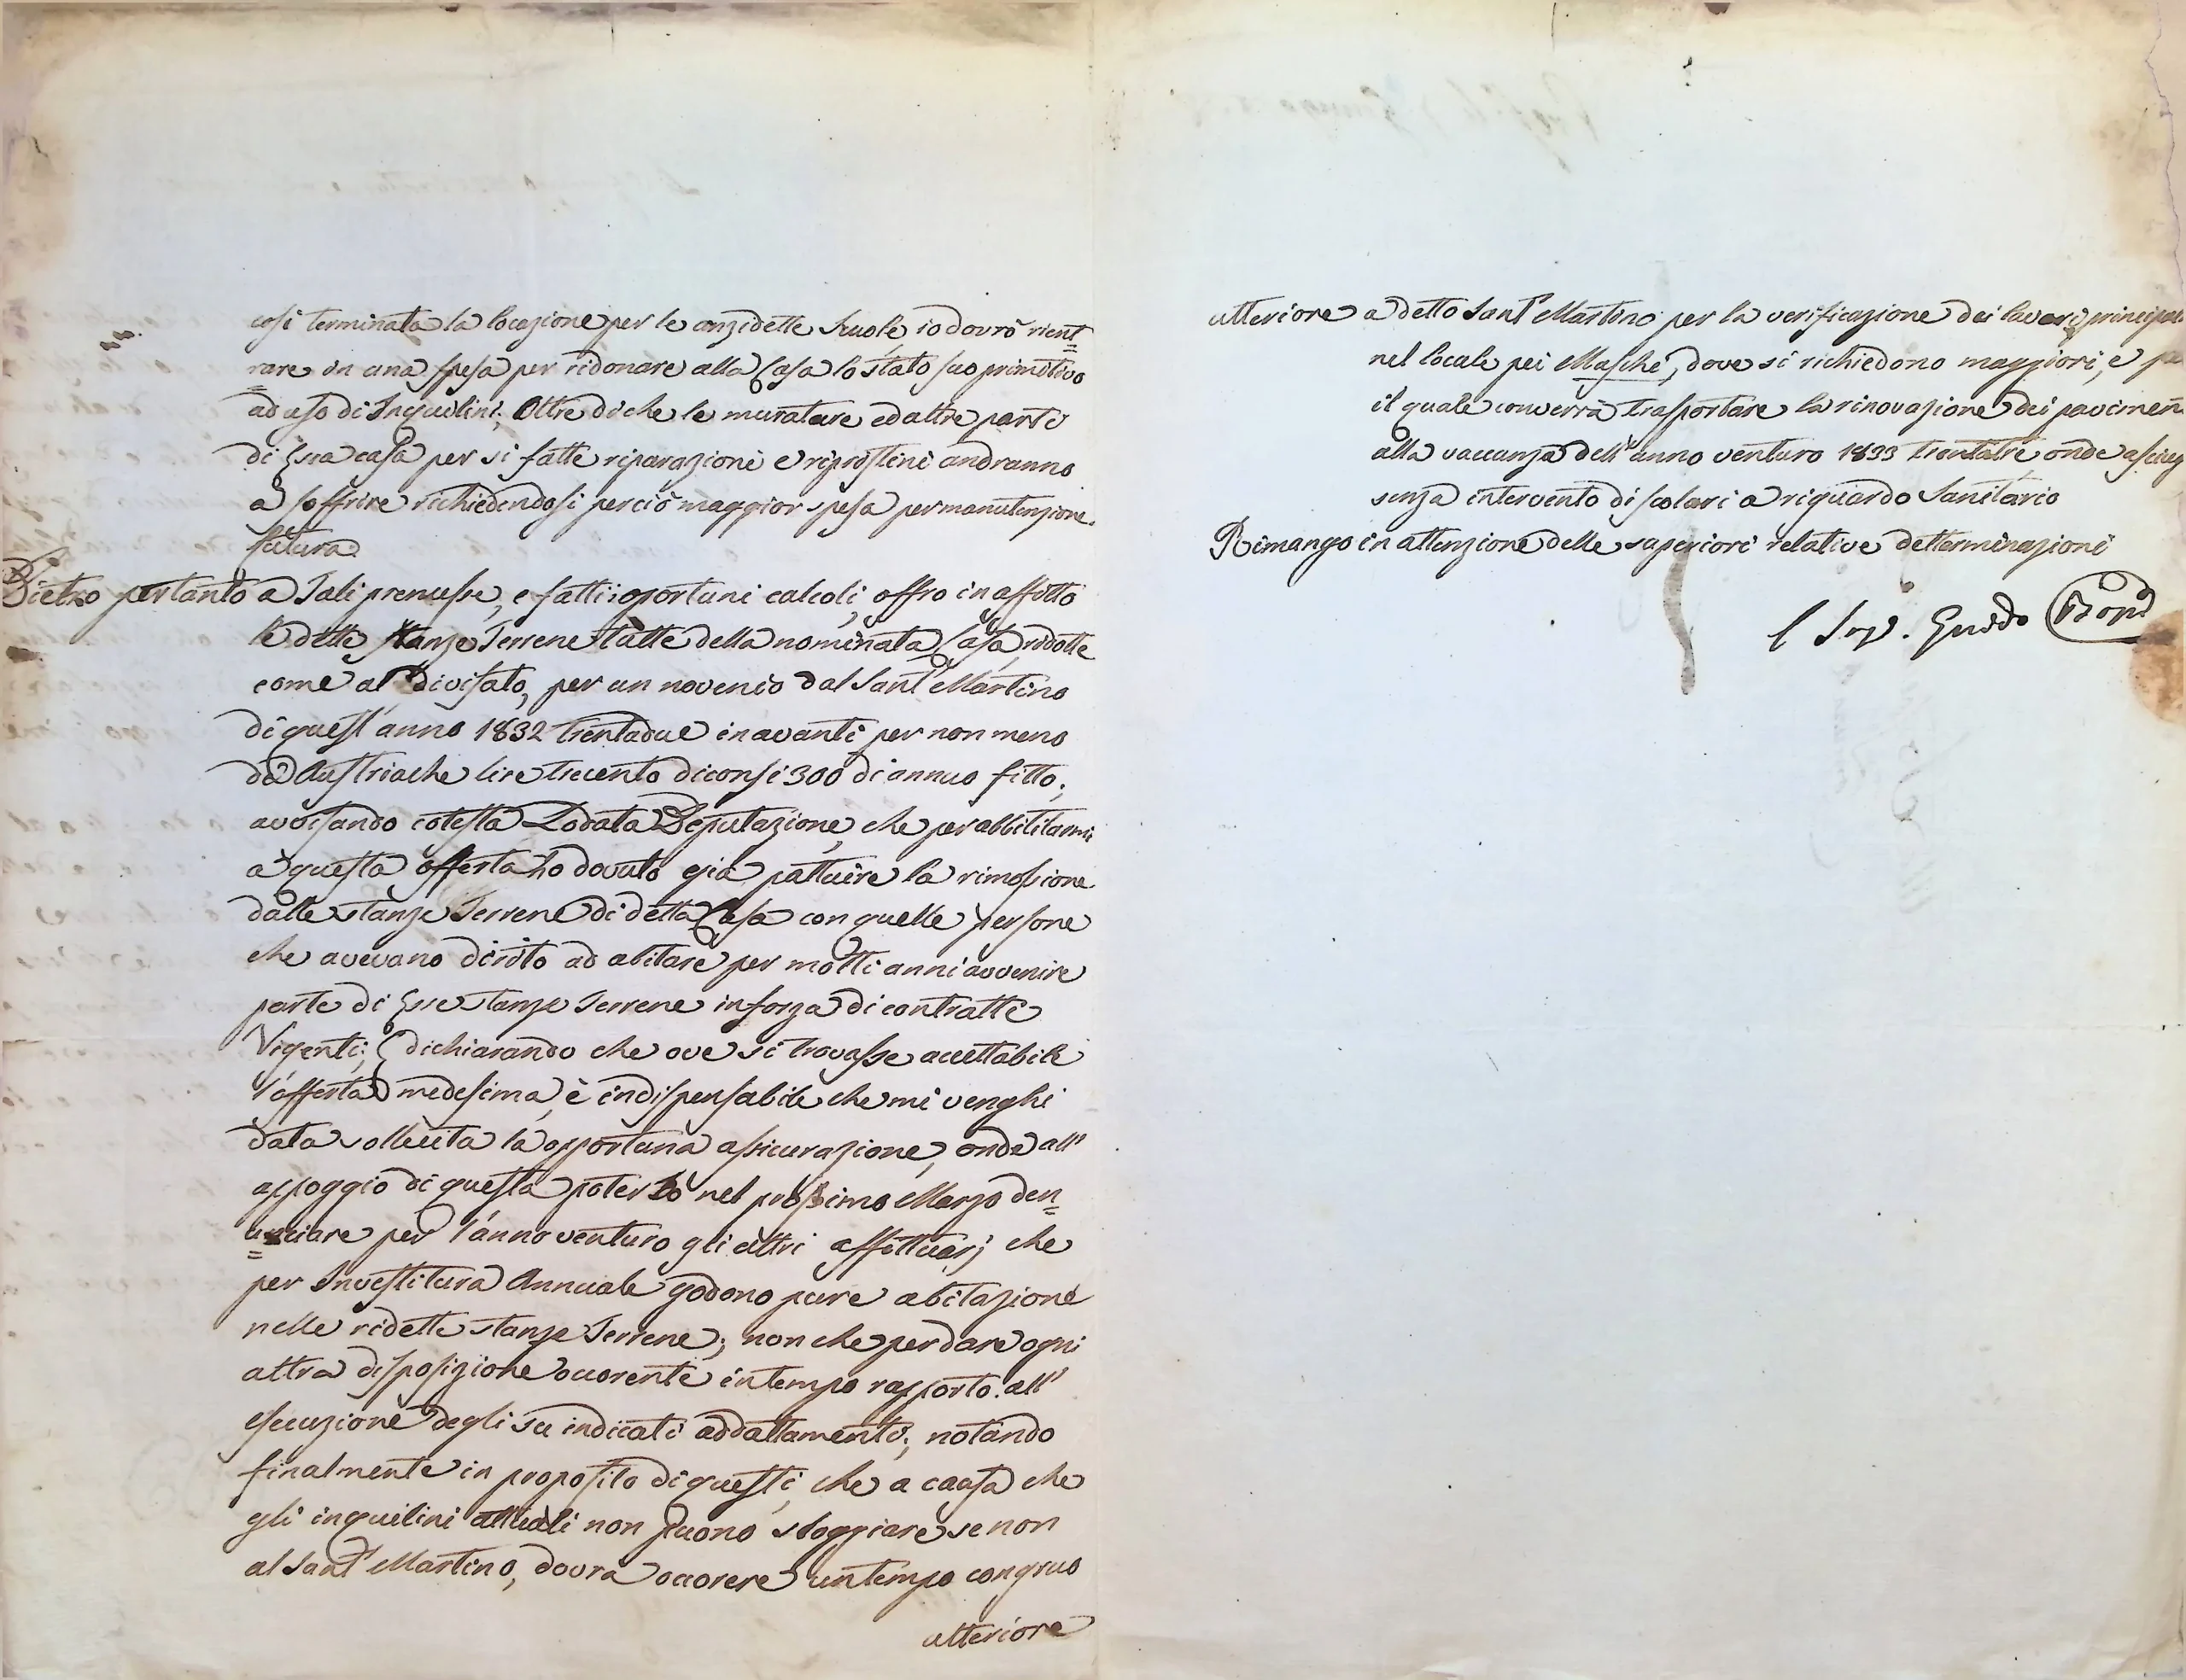 così terminata la locazione per le anzidette Scuole, io dovrò rient=
=rare in una spesa per ridonare alla Casa lo stato suo primitivo
ad uso di Inquilini; Oltre di che le murature ed altre parti
di Essa casa per si fatte riparazioni e ripristini andranno
a soffrire richiedendosi perciò maggior spesa per manutenzione
futura.
Dietro pertanto a Tali premesse, e fatti i oportuni calcoli, offro in affitto
le dette stanze Terrene tutte della nominata Casa, ridotte
come al divisato, per un novenio dal Sant Martino
di quest'anno 1832 trentadue in avanti per non meno
di Austriache lire trecento diconsi 300 di annuo fitto;
avvisando cotesta Lodata Deputazione, che per abbilitarmi
a questa offerta ho dovuto già pattuire la rimossione
dalle stanze Terrene di detta Casa con quelle persone
che avevano dirito ad abitare per molti anni avvenire
parte di Esse stanze Terrene in forza di contratti
Vigenti; E dichiarando che ove si trovasse accettabile
l'offerta medesima, è indispensabile che mi venghi
data sollecita la opportuna assicurazione, onde all'
appoggio di questa poter Io nel prossimo Marzo den=
=unciare per l'anno venturo gli altri affittuarj che
per Investitura Annuale godono pure abitazione
nelle ridette stanze Terrene; non che per dare ogni
altra disposizione ocorente in tempo rapporto all'
esecuzione degli su indicati addattamenti; notando
finalmente in proposito di questi, che a causa che
gli inquilini attuali non puono sloggiare se non
al Sant Martino, dovrà occorere un tempo congruo
ulteriore
ulteriore a detto Sant Martino per la verificazione dei lavori principal
nel locale pei Maschi, dove si richiedono maggiori, e
il quale converrà trasportare la rinovazione dei pavimen
alla vaccanza dell'anno venturo 1833 trentatre, onde asciug
senza intervento di scolari a riguardo Sanitario
Rimango in attenzione delle superiori relative detterminazioni
l Ing. Guido